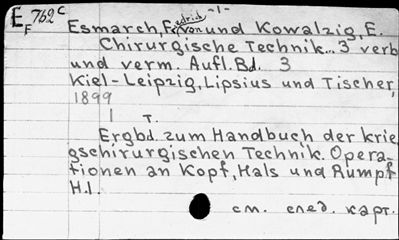 E_F 762 c -1-
Esmarch, Friedrich von und Kowalzig, E.
Chirurgische Technik... 3 verb
und verm. Aufl. Bd. 3
Kiel-Leipzig, Lipsius und Tischer,
1899
1 т.
Ergbd. zum Handbuch der krie
gschirurgischen Technik. Opera-
tionen an Kopf, Hals und Rumpf
H.1.
см. след. карт.